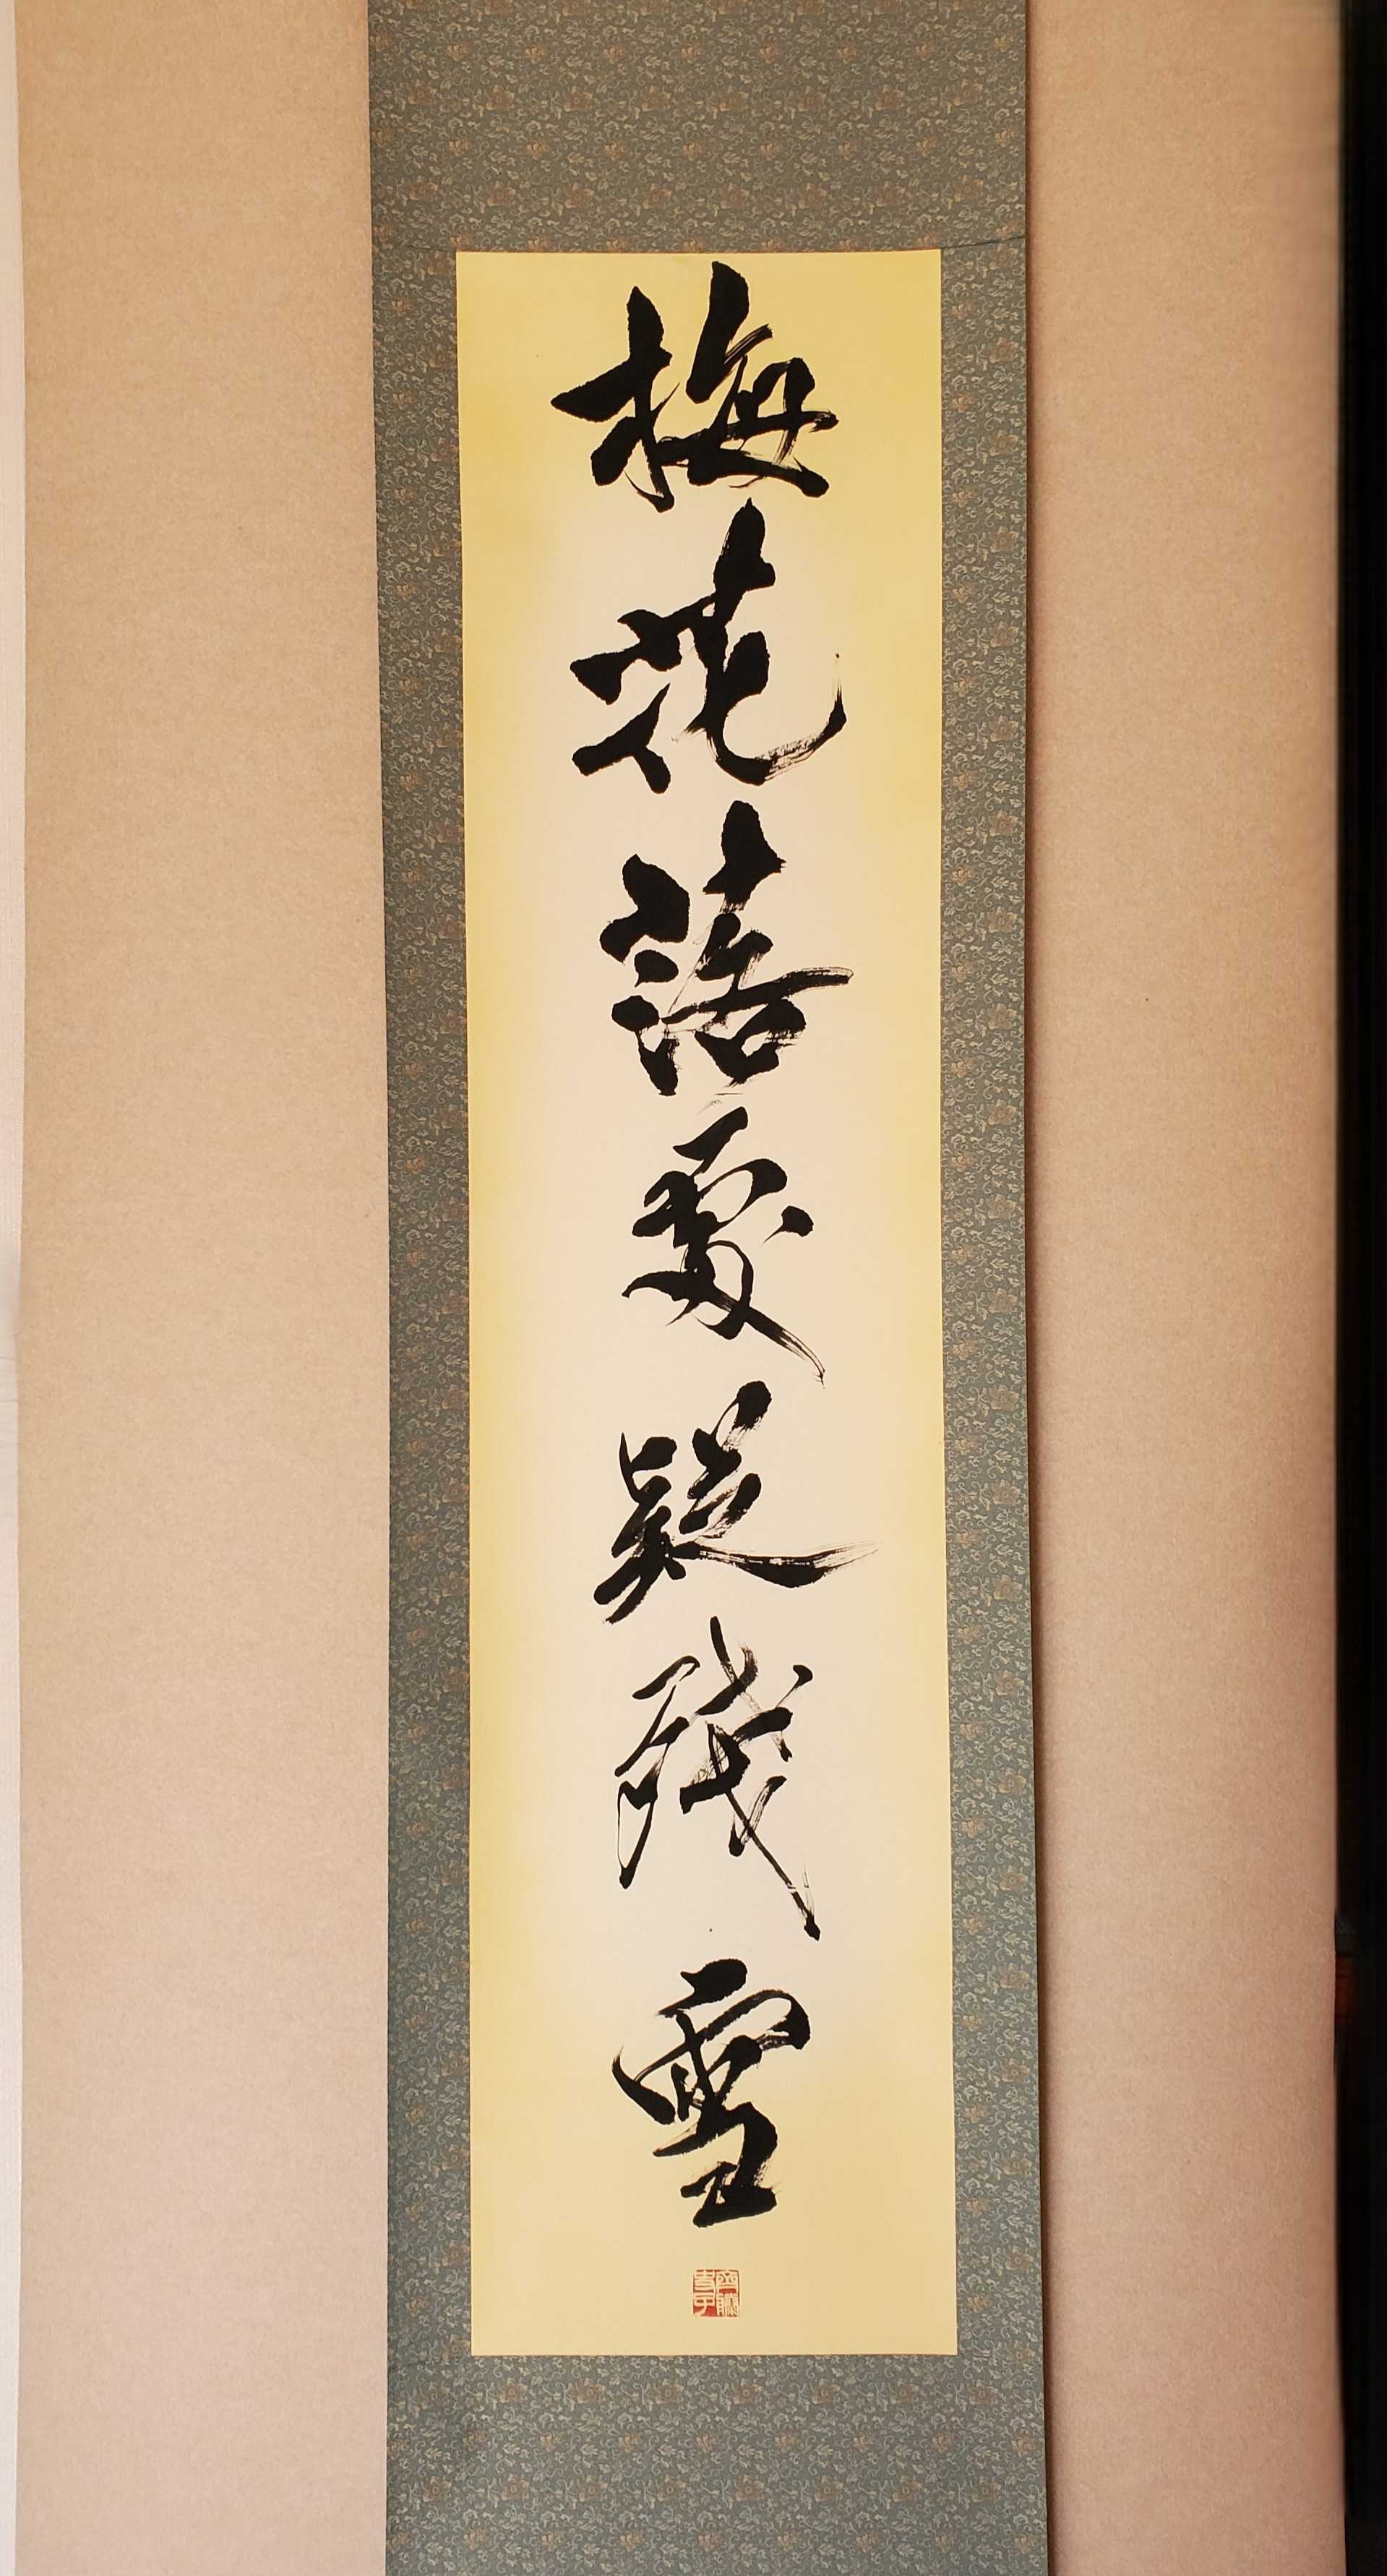 梅花落處疑残雪